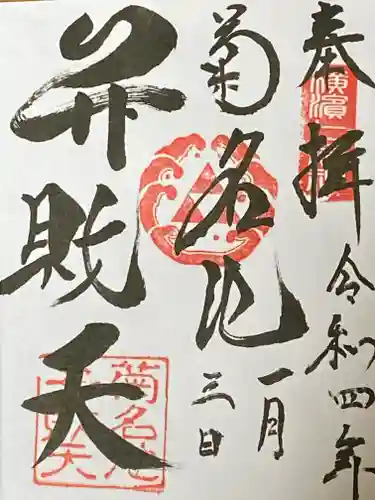 奉拝
令和四年
一月
三日
菊名池
弁財天
横濱
菊名池
弁財天